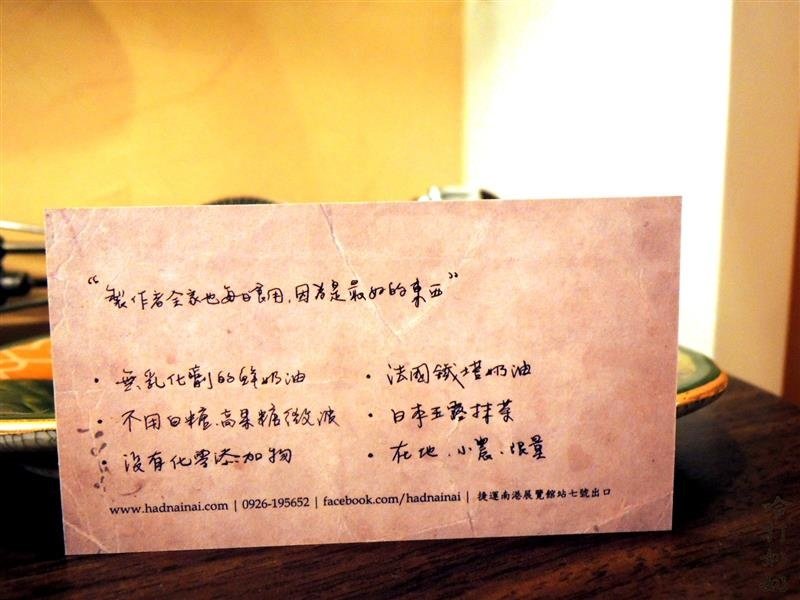 “製作者全家也每日食用,因為是最好的東西”
• 無乳化劑的鮮奶油
• 不用白糖、高果糖微波
• 沒有化學添加物
• 法國鐵塔奶油
• 日本玉露抹茶
• 在地、小農、限量
www.hadnainai.com | 0926-195652 | facebook.com/hadnainai | 捷運南港展覽館站七號出口
哈打奶奶